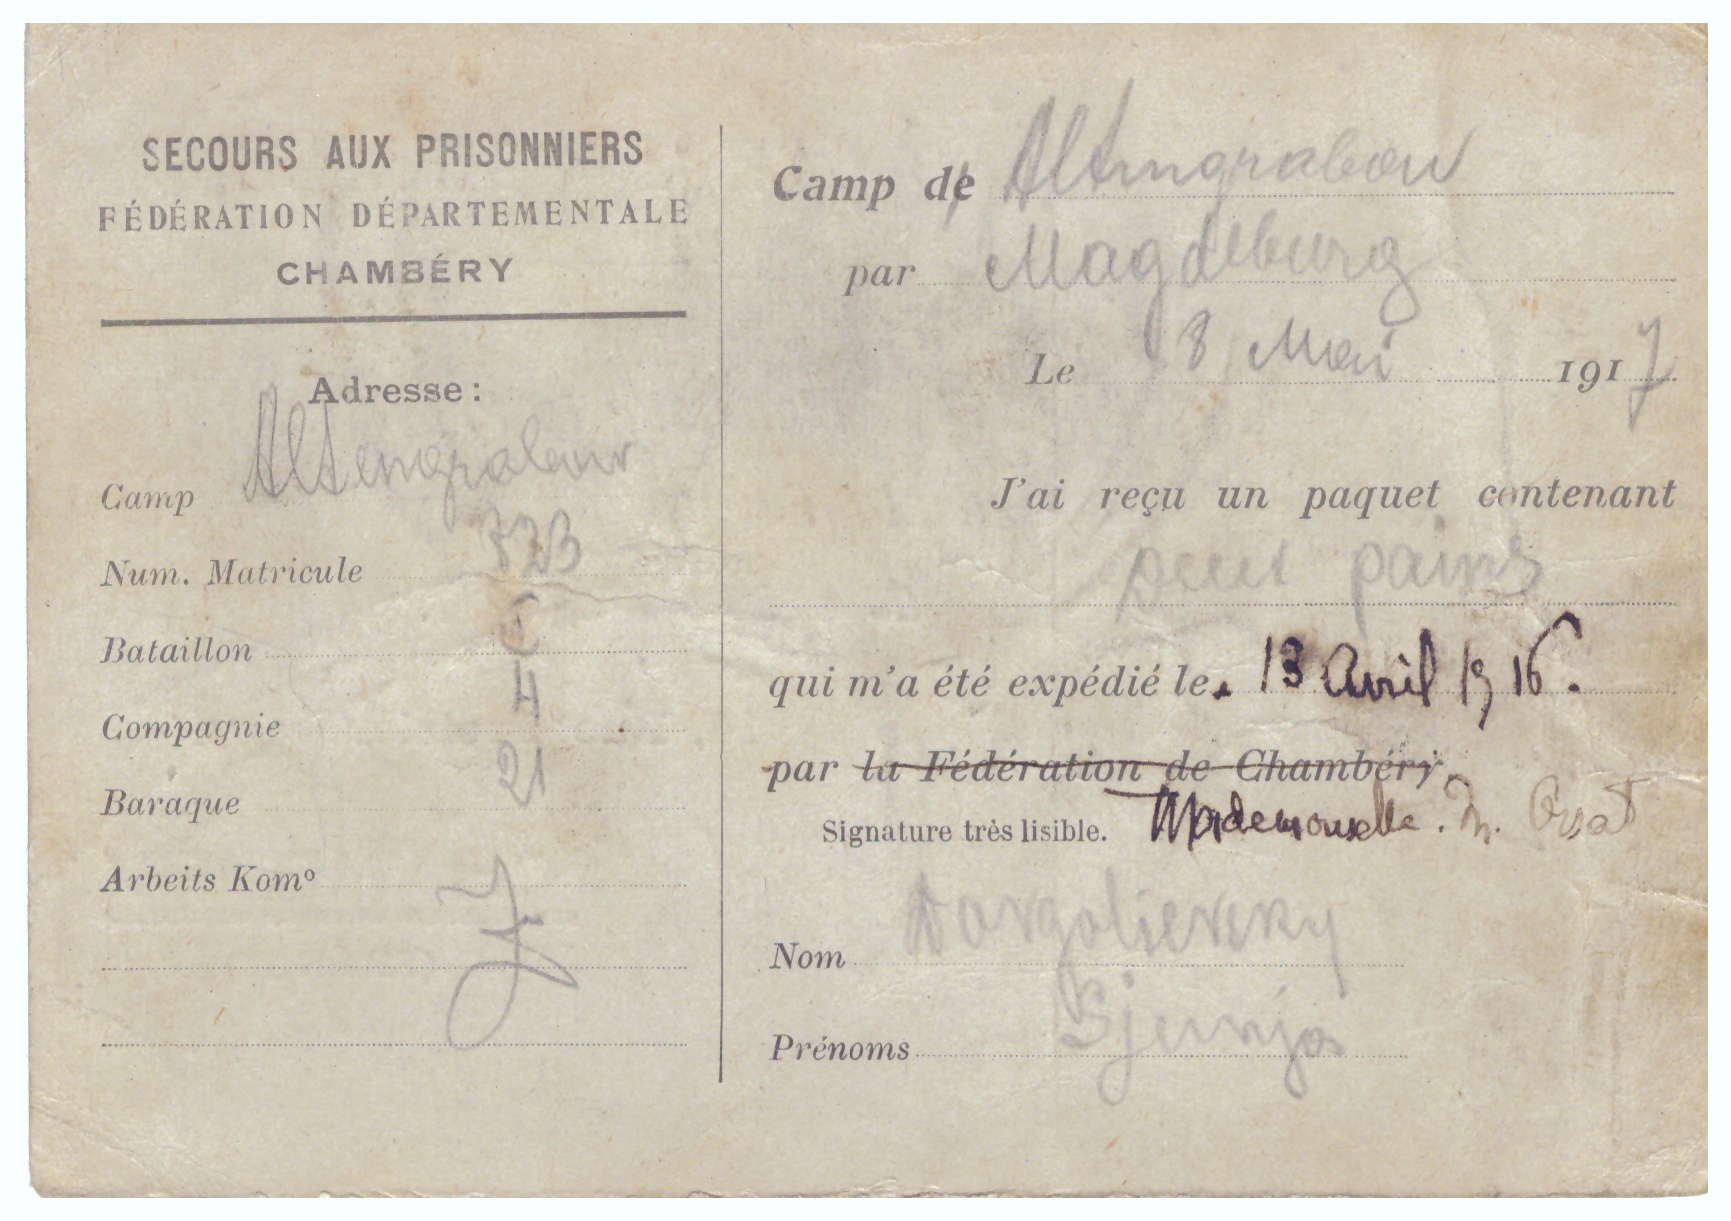 SECOURS AUX PRISONNIERS
FÉDÉRATION DÉPARTEMENTALE
CHAMBÉRY
Adresse :
Camp Altengrabow
Num. Matricule 723
Bataillon
Compagnie 4
Baraque 21
Arbeits Komº
Camp de Altengrabow
par Magdeburg
Le 8 Mai 1917
J'ai reçu un paquet contenant
pains
qui m'a été expédié le 13 Avril 1916.
par la Fédération de Chambéry.
Signature très lisible. Mademoiselle. M.
Nom
Prénoms